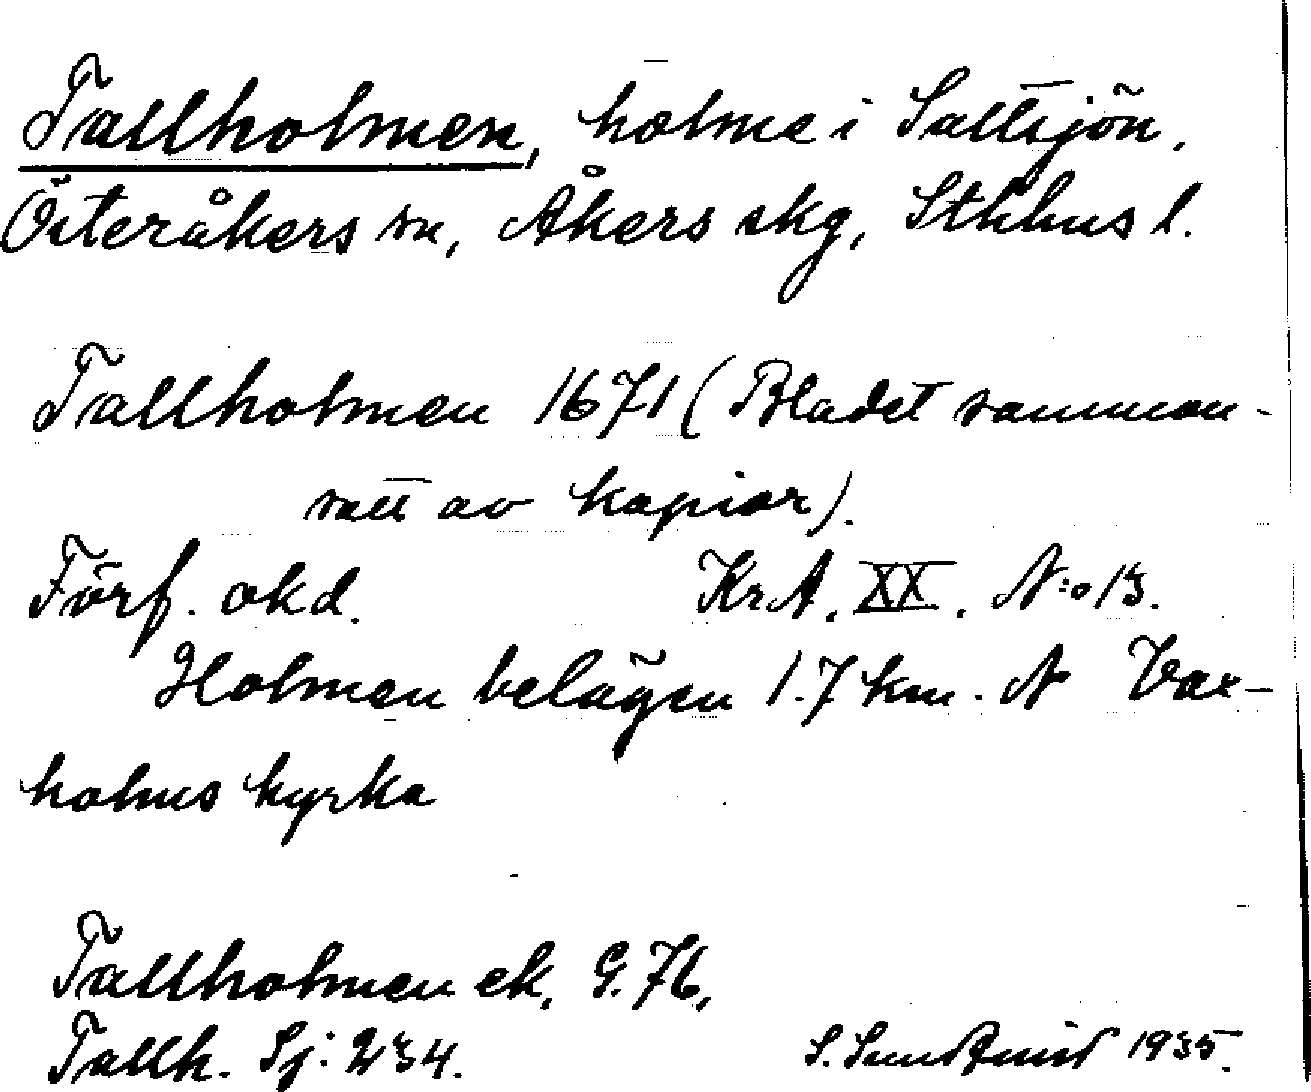 Tallholmen, holme i Saltsjön,
Österåkers sn, Åkers skg, Sthlms l.
Tallholmen 1671 (Bladet samman-
satt av kopior).
Förf. okd. KrA. XX. N:o 13.
Holmen belägen 1.7 km. N Vax-
holms kyrka
Tallholmen ek. G. 76,
Tallh. Sj: 234. S. Sundquist 1935.